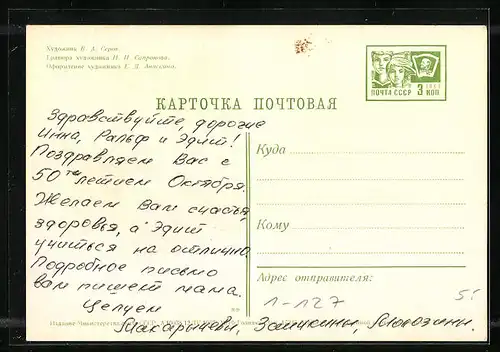 Художник В. А. Серов
Гравюра художника И. Н.
Оформление художника Е. Д.
ПОЧТА СССР 3 КОП
КАРТОЧКА ПОЧТОВАЯ
Здравствуйте, дорогие
Инна, Ральф и Эдит!
Поздравляем Вас с
50тилетием Октября.
Желаем Вам счастья,
здоровья, а Эдит
учиться на отлично.
Подробное письмо
вам пишет мама.
Целуем
Макарычевы,
Куда
Кому
Адрес отправителя:
1-127
5.-
Издание Министерства